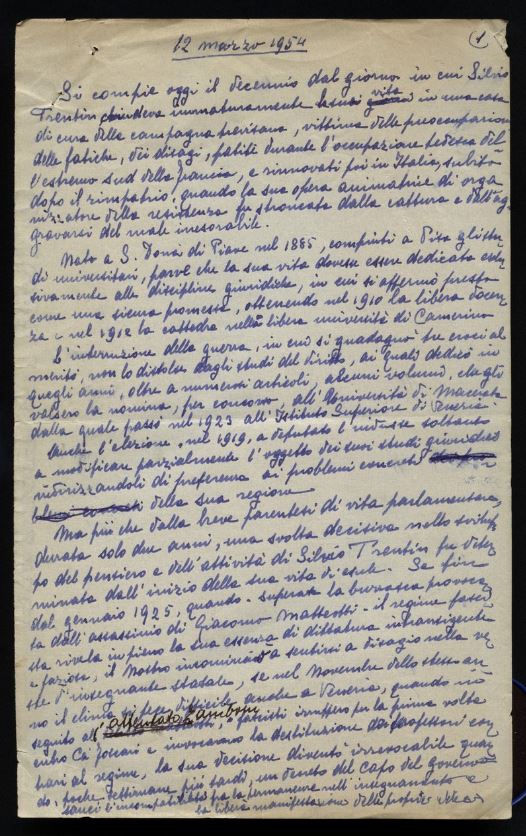 12 marzo 1954
1
Si compie oggi il decennio dal giorno in cui Silvio
Trentin chiudeva immaturamente la sua vita in una casa
di cura della campagna trevisana, vittima delle preoccupazioni
delle fatiche, dei disagi, patiti durante l'occupazione tedesca del
l'estremo sud della Francia, e rinnovati poi in Italia, subito
dopo il rimpatrio, quando la sua opera animatrice di orga
nizzatore della resistenza fu stroncata dalla cattura e dall'ag-
gravarsi del male inesorabile.
Nato a S. Donà di Piave nel 1885, compiuti a Pisa gli stu
di universitari, parve che la sua vita dovesse essere dedicata esclu
sivamente alle discipline giuridiche, in cui si affermò presto
come una sicura promessa, ottenendo nel 1910 la libera docen
za e nel 1912 la cattedra nella libera università di Camerino
L'interruzione della guerra, in cui si guadagnò tre croci al
merito, non lo distolse dagli studi del diritto, ai quali dedicò in
quegli anni, oltre a numerosi articoli, alcuni volumi, che gli
valsero la nomina, per concorso, all'Università di Macerata
dalla quale passò nel 1923 all'Istituto Superiore di Venezia
Anche l'elezione, nel 1919, a deputato l'indusse soltanto
a modificare parzialmente l'oggetto dei suoi studi giuridici
indirizzandoli di preferenza ai problemi concreti
della sua regione
Ma più che dalla breve parentesi di vita parlamentare,
durata solo due anni, una svolta decisiva nello svilup
po del pensiero e dell'attività di Silvio Trentin fu deter
minata dall'inizio della sua vita di esule. Se fin
dal gennaio 1925, quando - superata la burrasca provoca
ta dall'assassinio di Giacomo Matteotti - il regime fasci
sta rivela in pieno la sua essenza di dittatura intransigente
e faziosa, il Nostro incominciò a sentirsi a disagio nella ve
ste d'insegnante statale, se nel Novembre dello stesso an
no il clima si fece difficile anche a Venezia, quando in
seguito all'attentato Zamboni, i fascisti irruppero per la prima volta
entro Ca' Foscari e invocarono la destituzione dei professori con
trari al regime, la sua decisione diventò irrevocabile quan
do, poche settimane più tardi, un decreto del capo del governo
sancì l'incompatibilità fra la permanenza nell'insegnamento e
la libera manifestazione delle proprie idee